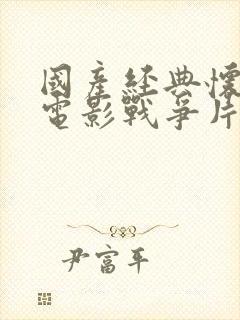 國產經典懷
電影戰爭片
尹富平